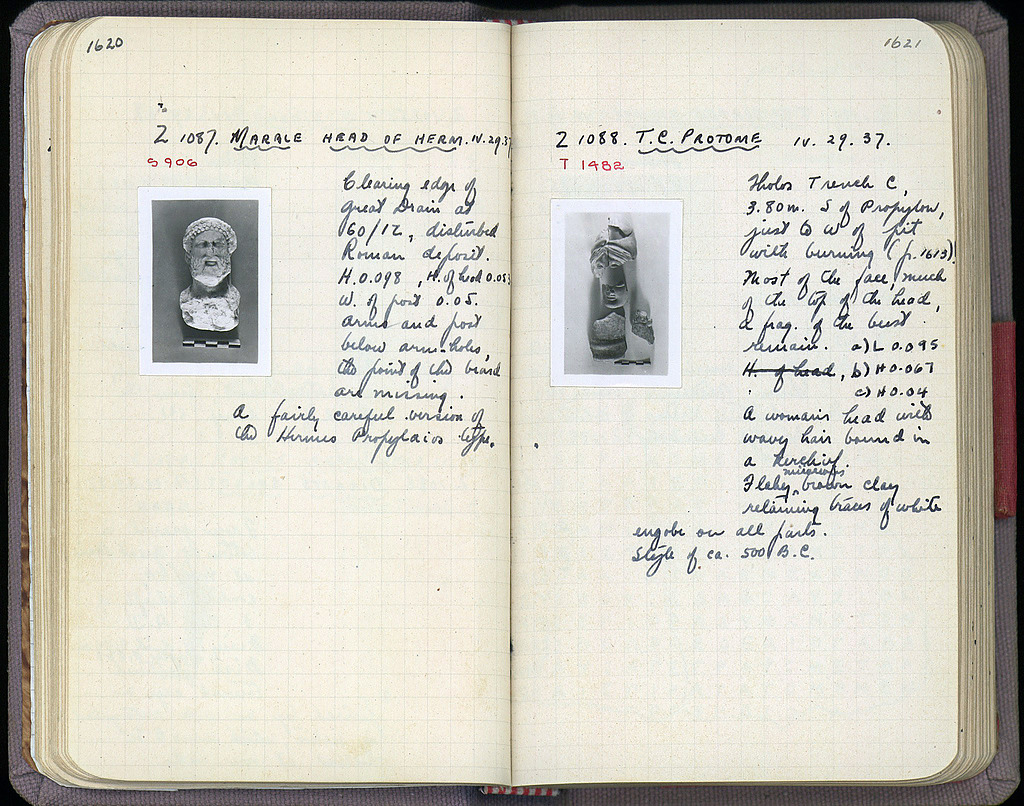 1620
Z 1087. MARBLE HEAD OF HERM. IV.29.37
S 906
Clearing edge of
Great Drain at
60/ΙΖ, disturbed
Roman deposit.
H. 0.098, H. of head 0.053
W. of post 0.05.
Arms and post
below arm-holes,
the point of the beard
are missing.
A fairly careful version of
the Hermes Propylaios type.
1621
Z 1088. T.C. PROTOME IV. 29. 37.
T 1482
Tholos Trench C,
3.80m. S of Propylon,
just to W of pit
with burning (p. 1613).
Most of the face, much
of the top of the head,
a frag. of the bust
remain. a) L 0.095
H. of head, b) H 0.067
c) H 0.04
A woman's head with
wavy hair bound in
a kerchief.
micaceous
Flaky, brown clay
retaining traces of white
engobe on all parts.
Style of ca. 500 B.C.